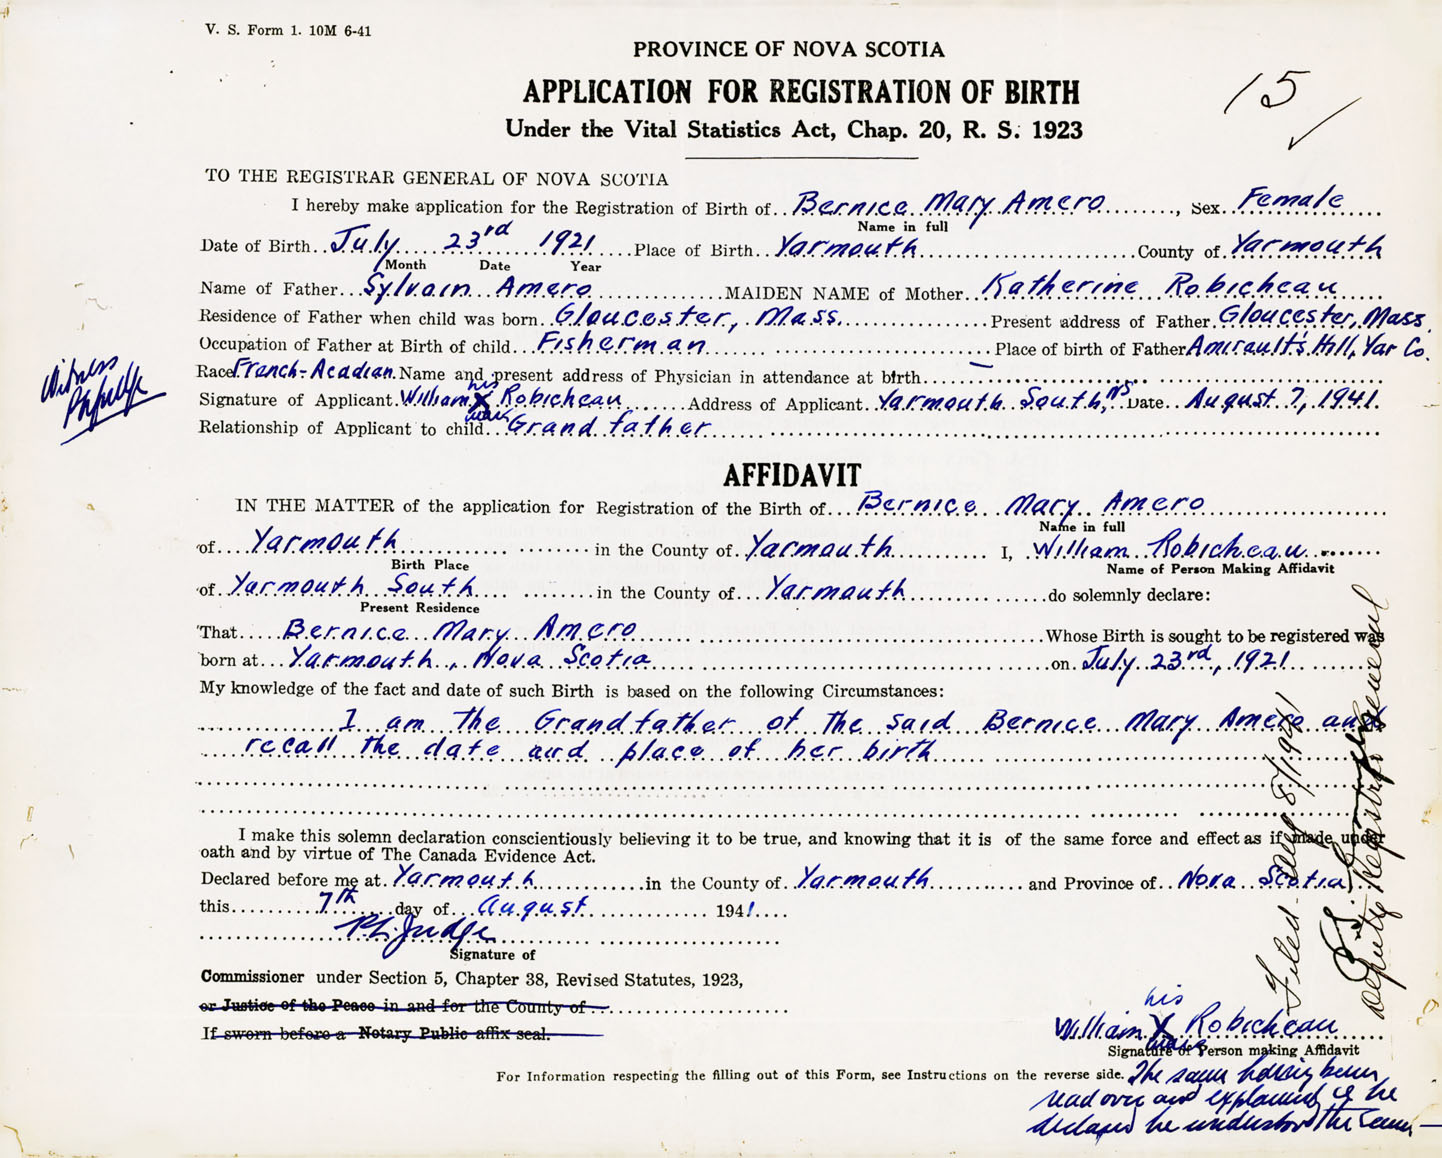 V. S. Form 1. 10M 6-41
PROVINCE OF NOVA SCOTIA
APPLICATION FOR REGISTRATION OF BIRTH
Under the Vital Statistics Act, Chap. 20, R. S. 1923
15
TO THE REGISTRAR GENERAL OF NOVA SCOTIA
I hereby make application for the Registration of Birth of Bernice Mary Amero, Sex Female
Name in full
Date of Birth July 23rd 1921 Place of Birth Yarmouth County of Yarmouth
Month Date Year
Name of Father Sylvain Amero MAIDEN NAME of Mother Katherine Robicheau
Residence of Father when child was born Gloucester, Mass. Present address of Father Gloucester, Mass.
Occupation of Father at Birth of child Fisherman Place of birth of Father Amirault's Hill, Yar Co.
Race French-Acadian Name and present address of Physician in attendance at birth —
Witness
Signature of Applicant William his X mark Robicheau Address of Applicant Yarmouth South, NS Date August 7, 1941.
Relationship of Applicant to child Grandfather
AFFIDAVIT
IN THE MATTER of the application for Registration of the Birth of Bernice Mary Amero
Name in full
of Yarmouth in the County of Yarmouth I, William Robicheau
Birth Place Name of Person Making Affidavit
of Yarmouth South in the County of Yarmouth do solemnly declare:
Present Residence
That Bernice Mary Amero Whose Birth is sought to be registered was
born at Yarmouth, Nova Scotia on July 23rd, 1921
My knowledge of the fact and date of such Birth is based on the following Circumstances:
I am the Grandfather of the said Bernice Mary Amero and
recall the date and place of her birth
I make this solemn declaration conscientiously believing it to be true, and knowing that it is of the same force and effect as if made under
oath and by virtue of The Canada Evidence Act.
Declared before me at Yarmouth in the County of Yarmouth and Province of Nova Scotia
this 7th day of August 1941
P L Judge
Signature of
Commissioner under Section 5, Chapter 38, Revised Statutes, 1923,
or Justice of the Peace in and for the County of
If sworn before a Notary Public affix seal.
William his X mark Robicheau
Signature of Person making Affidavit
For Information respecting the filling out of this Form, see Instructions on the reverse side.
The same having been
read over and explained he
declared he understood the same —
Filed Aug 8/1941
Deputy Registrar General